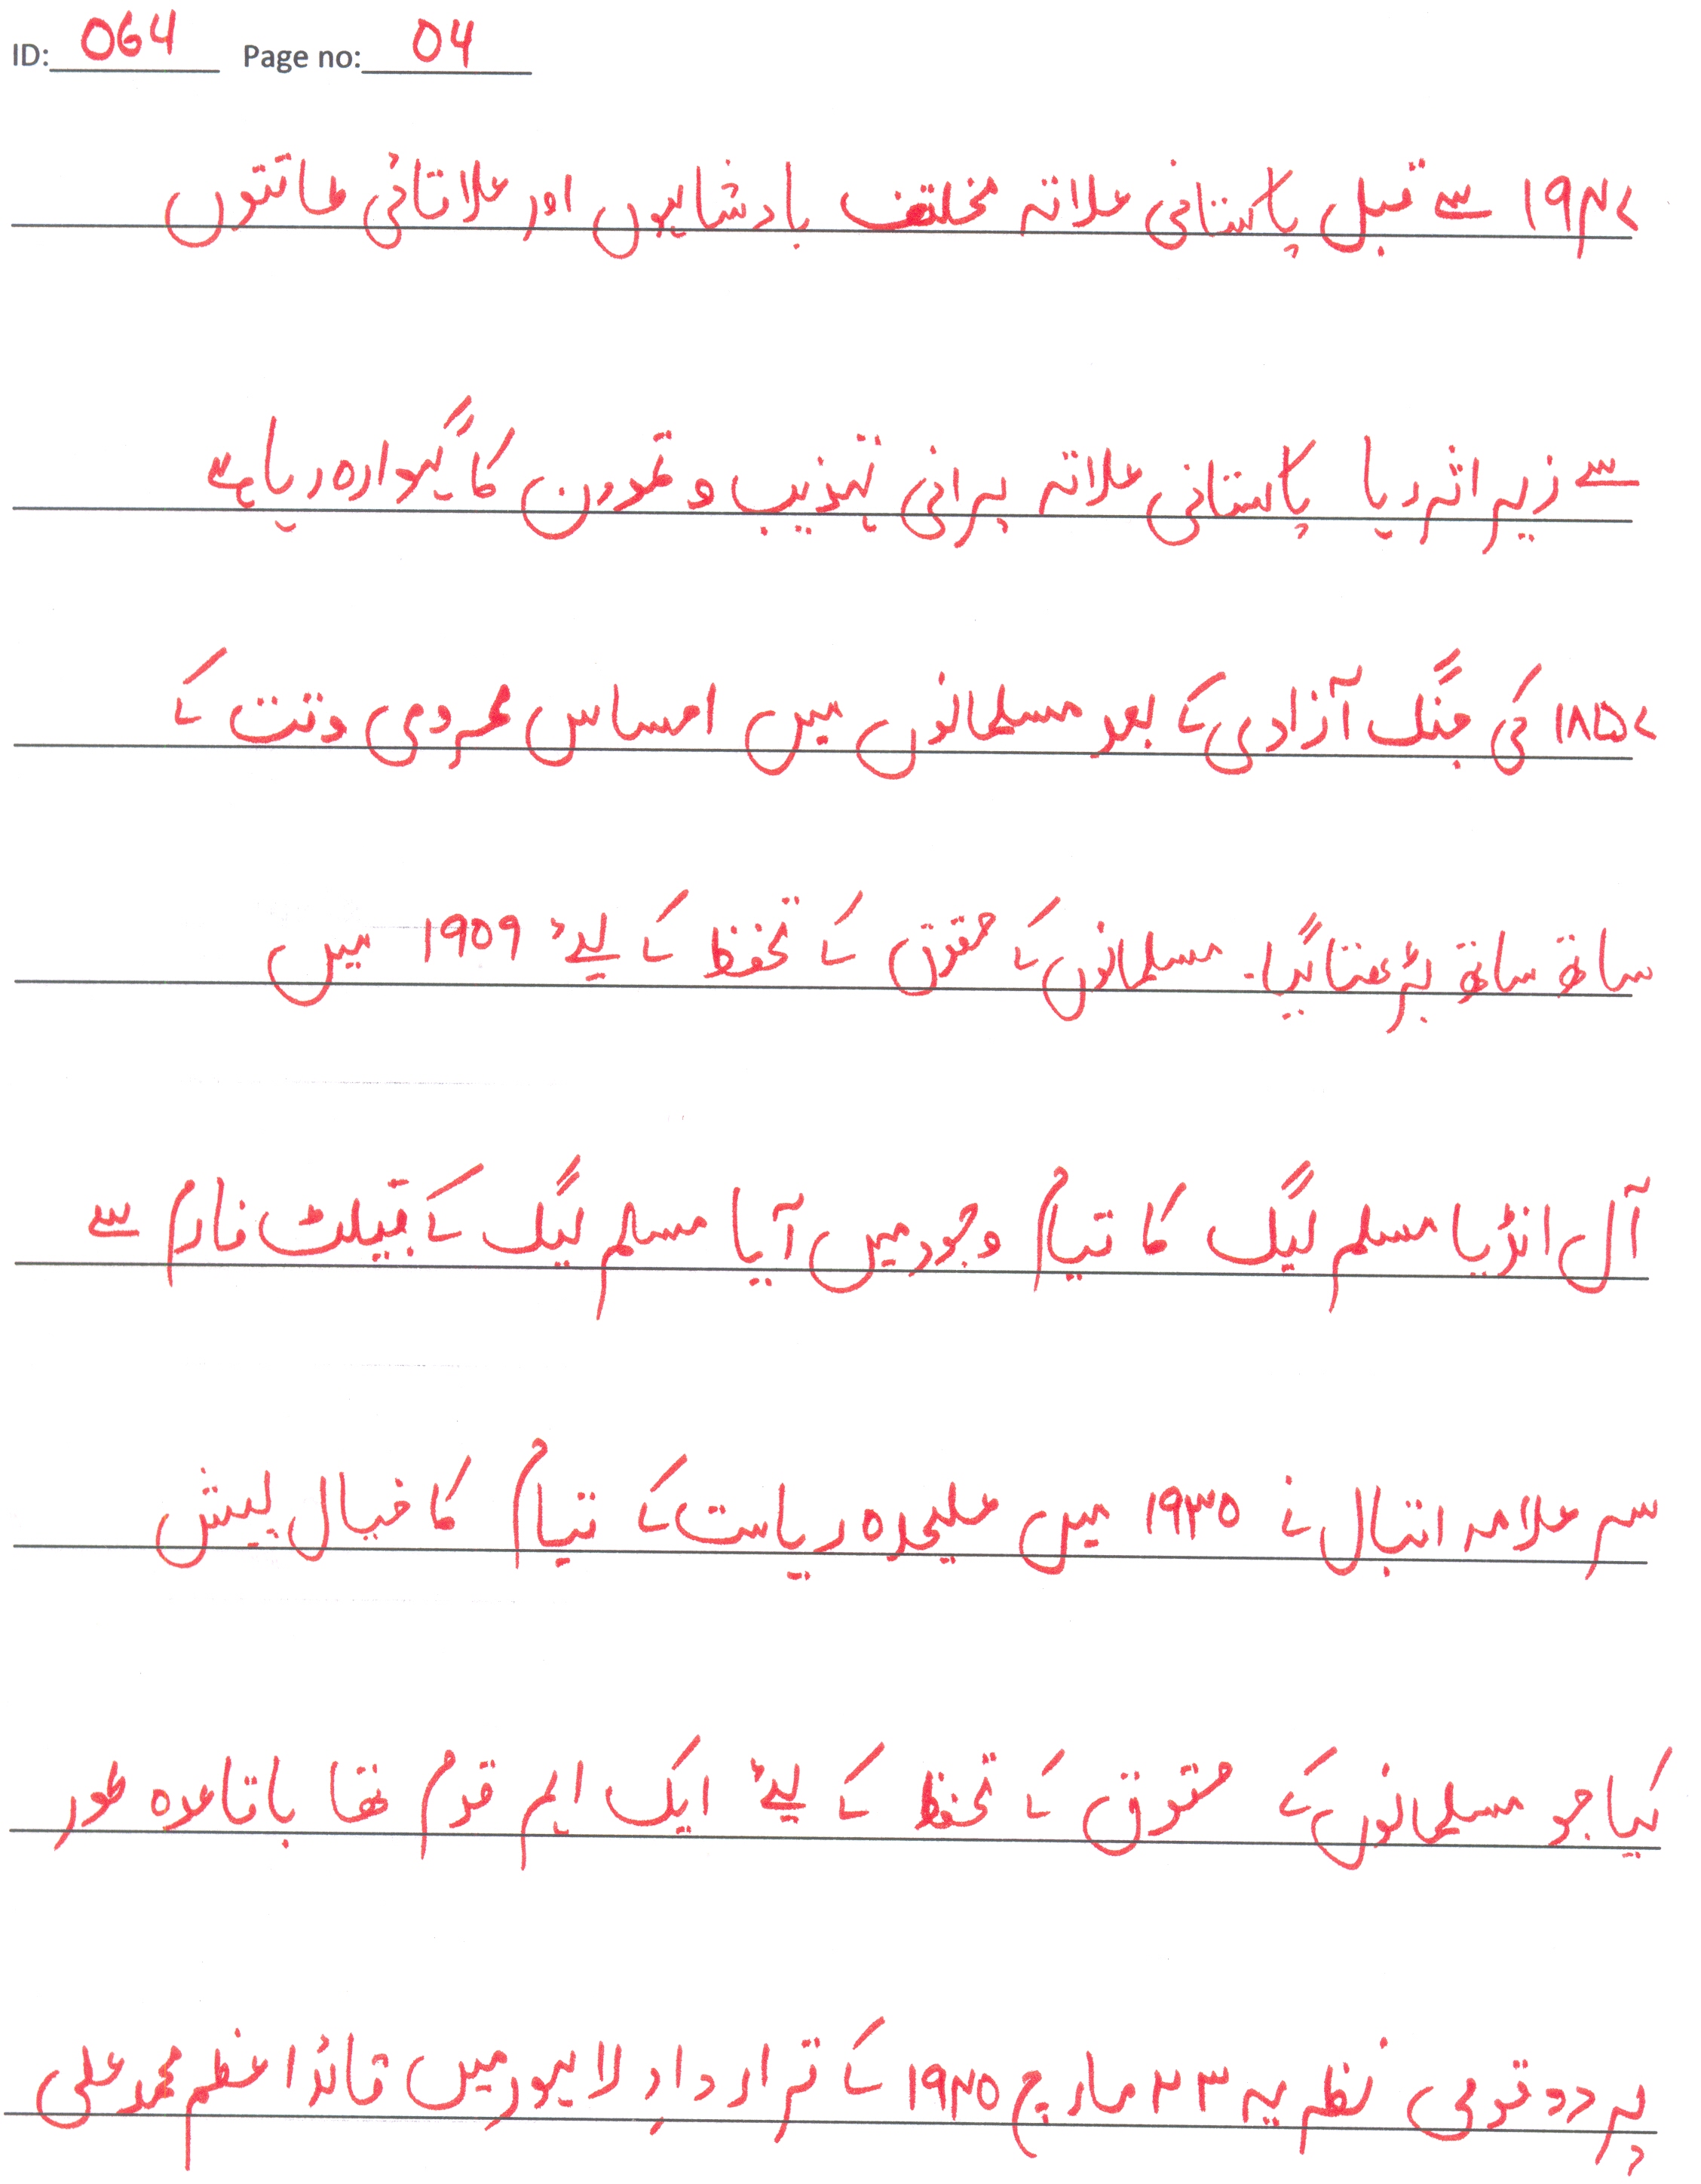 ID: 064 Page no: 04
۱۹۴۷ سے قبل پاکستانی علاقہ مختلف بادشاہوں اور علاقائی طاقتوں
سے زیر اثر رہا پاکستانی علاقہ پرانی تہذیب و تمدن کا گہوارہ رہا ہے
۱۸۵۷ کی جنگ آزادی کے بعد مسلمانوں میں احساس محرومی وقت کے
ساتھ ساتھ بڑھتا گیا۔ مسلمانوں کے حقوق کے تحفظ کے لیے ۱۹۰۹ میں
آل انڈیا مسلم لیگ کا قیام وجود میں آیا مسلم لیگ کے پلیٹ فارم سے
سر علامہ اقبال نے ۱۹۳۰ میں علیحدہ ریاست کے قیام کا خیال پیش
کیا جو مسلمانوں کے حقوق کے تحفظ کے لیئے ایک اہم قدم تھا باقاعدہ طور
پر دو قومی نظریہ ۲۳ مارچ ۱۹۴۰ کے قرار دادِ لاہور میں قائد اعظم محمد علی